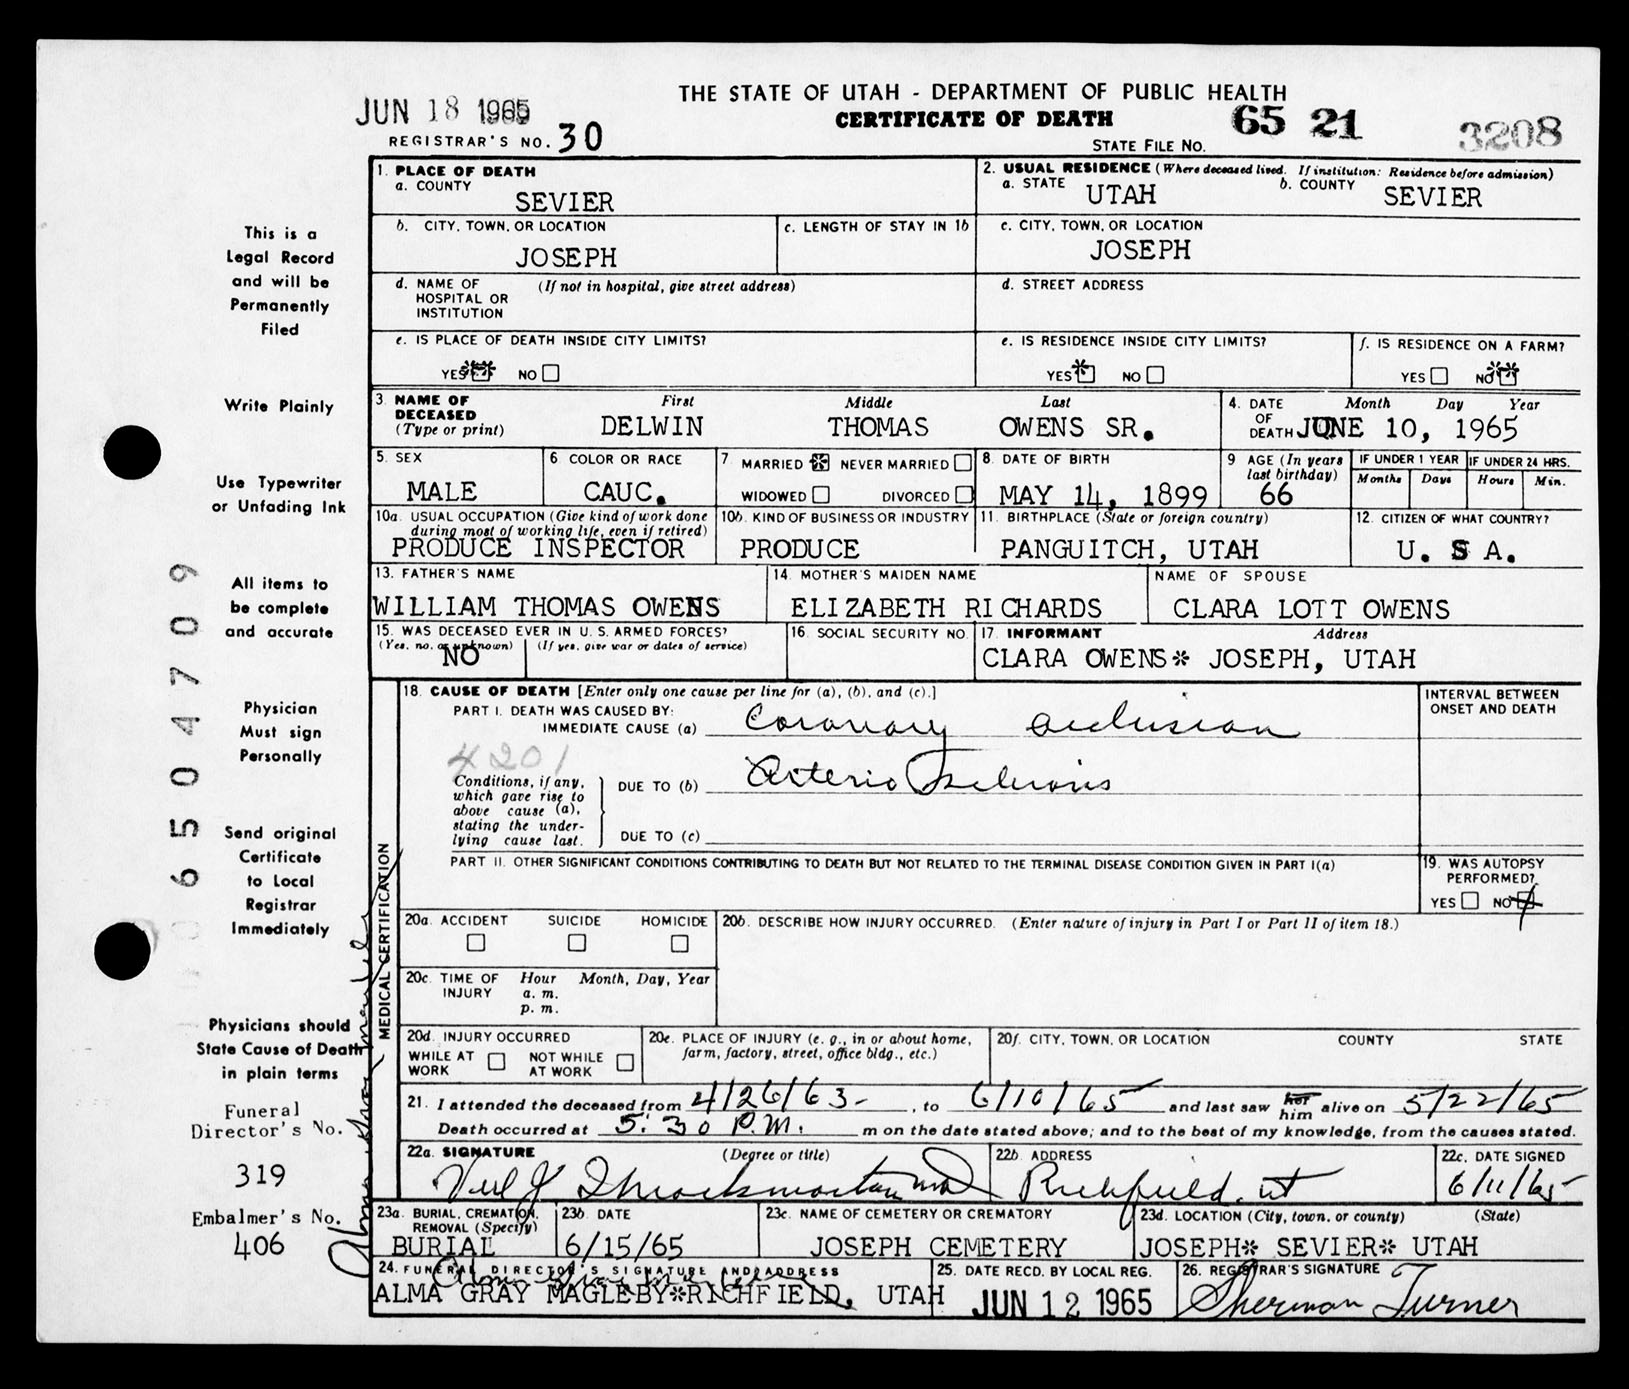 THE STATE OF UTAH - DEPARTMENT OF PUBLIC HEALTH
JUN 18 1965
CERTIFICATE OF DEATH 65 21 3208
REGISTRAR'S NO. 30 STATE FILE No.
1. PLACE OF DEATH
a. COUNTY
SEVIER
2. USUAL RESIDENCE (Where deceased lived. If institution: Residence before admission)
a. STATE UTAH b. COUNTY SEVIER
b. CITY, TOWN, OR LOCATION
JOSEPH
c. LENGTH OF STAY IN 1b
c. CITY, TOWN, OR LOCATION
JOSEPH
d. NAME OF HOSPITAL OR INSTITUTION (If not in hospital, give street address)
d. STREET ADDRESS
e. IS PLACE OF DEATH INSIDE CITY LIMITS?
YES NO
e. IS RESIDENCE INSIDE CITY LIMITS?
YES NO
f. IS RESIDENCE ON A FARM?
YES NO
3. NAME OF DECEASED (Type or print)
First Middle Last
DELWIN THOMAS OWENS SR.
4. DATE OF DEATH Month Day Year
JUNE 10, 1965
5. SEX
MALE
6 COLOR OR RACE
CAUC.
7 MARRIED NEVER MARRIED
WIDOWED DIVORCED
8. DATE OF BIRTH
MAY 14, 1899
9 AGE (In years last birthday)
66
IF UNDER 1 YEAR IF UNDER 24 HRS.
Months Days Hours Min.
10a. USUAL OCCUPATION (Give kind of work done during most of working life, even if retired)
PRODUCE INSPECTOR
10b. KIND OF BUSINESS OR INDUSTRY
PRODUCE
11. BIRTHPLACE (State or foreign country)
PANGUITCH, UTAH
12. CITIZEN OF WHAT COUNTRY?
U. S A.
13. FATHER'S NAME
WILLIAM THOMAS OWENS
14. MOTHER'S MAIDEN NAME
ELIZABETH RICHARDS
NAME OF SPOUSE
CLARA LOTT OWENS
15. WAS DECEASED EVER IN U. S. ARMED FORCES?
(Yes, no, or unknown) (If yes, give war or dates of service)
NO
16. SOCIAL SECURITY NO.
17. INFORMANT Address
CLARA OWENS* JOSEPH, UTAH
MEDICAL CERTIFICATION
18. CAUSE OF DEATH [Enter only one cause per line for (a), (b), and (c).]
PART I. DEATH WAS CAUSED BY:
IMMEDIATE CAUSE (a) Coronary occlusion
INTERVAL BETWEEN ONSET AND DEATH
4201
Conditions, if any, which gave rise to above cause (a), stating the underlying cause last.
DUE TO (b) Arterio Sclerosis
DUE TO (c)
PART II. OTHER SIGNIFICANT CONDITIONS CONTRIBUTING TO DEATH BUT NOT RELATED TO THE TERMINAL DISEASE CONDITION GIVEN IN PART I(a)
19. WAS AUTOPSY PERFORMED?
YES NO
20a. ACCIDENT SUICIDE HOMICIDE
20b. DESCRIBE HOW INJURY OCCURRED. (Enter nature of injury in Part I or Part II of item 18.)
20c. TIME OF INJURY Hour Month, Day, Year
a. m.
p. m.
20d. INJURY OCCURRED
WHILE AT WORK NOT WHILE AT WORK
20e. PLACE OF INJURY (e. g., in or about home, farm, factory, street, office bldg., etc.)
20f. CITY, TOWN, OR LOCATION COUNTY STATE
21. I attended the deceased from 4/26/63- , to 6/10/65 and last saw her him alive on 5/22/65
Death occurred at 5:30 P.M. m on the date stated above; and to the best of my knowledge, from the causes stated.
22a. SIGNATURE (Degree or title)
Verl J Throckmorton MD
22b. ADDRESS
Richfield, Ut
22c. DATE SIGNED
6/11/65
23a. BURIAL, CREMATION, REMOVAL (Specify)
BURIAL
23b. DATE
6/15/65
23c. NAME OF CEMETERY OR CREMATORY
JOSEPH CEMETERY
23d. LOCATION (City, town, or county) (State)
JOSEPH* SEVIER* UTAH
24. FUNERAL DIRECTOR'S SIGNATURE AND ADDRESS
ALMA GRAY MAGLEBY*RICHFIELD, UTAH
25. DATE RECD. BY LOCAL REG.
JUN 12 1965
26. REGISTRAR'S SIGNATURE
Sherman Turner
This is a
Legal Record
and will be
Permanently
Filed
Write Plainly
Use Typewriter
or Unfading Ink
All items to
be complete
and accurate
Physician
Must sign
Personally
Send original
Certificate
to Local
Registrar
Immediately
Physicians should
State Cause of Death
in plain terms
Funeral
Director's No.
319
Embalmer's No.
406
6504709